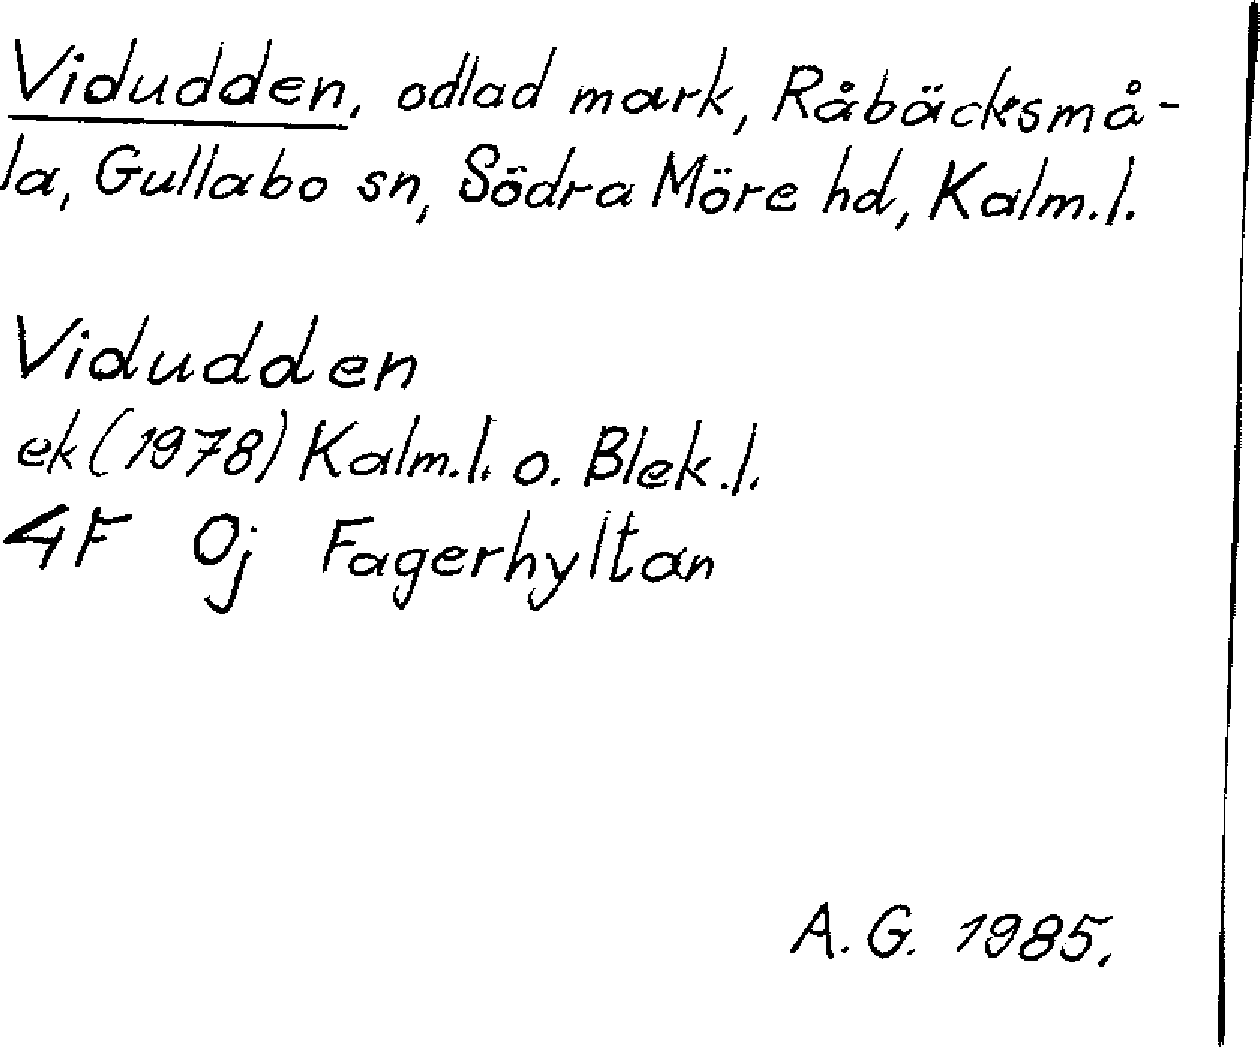 Vidudden, odlad mark, Råbäcksmå-
la, Gullabo sn, Södra Möre hd, Kalm.l.
Vidudden
ek (1978) Kalm.l. o. Blek.l.
4F 0j Fagerhyltan
A. G. 1985.